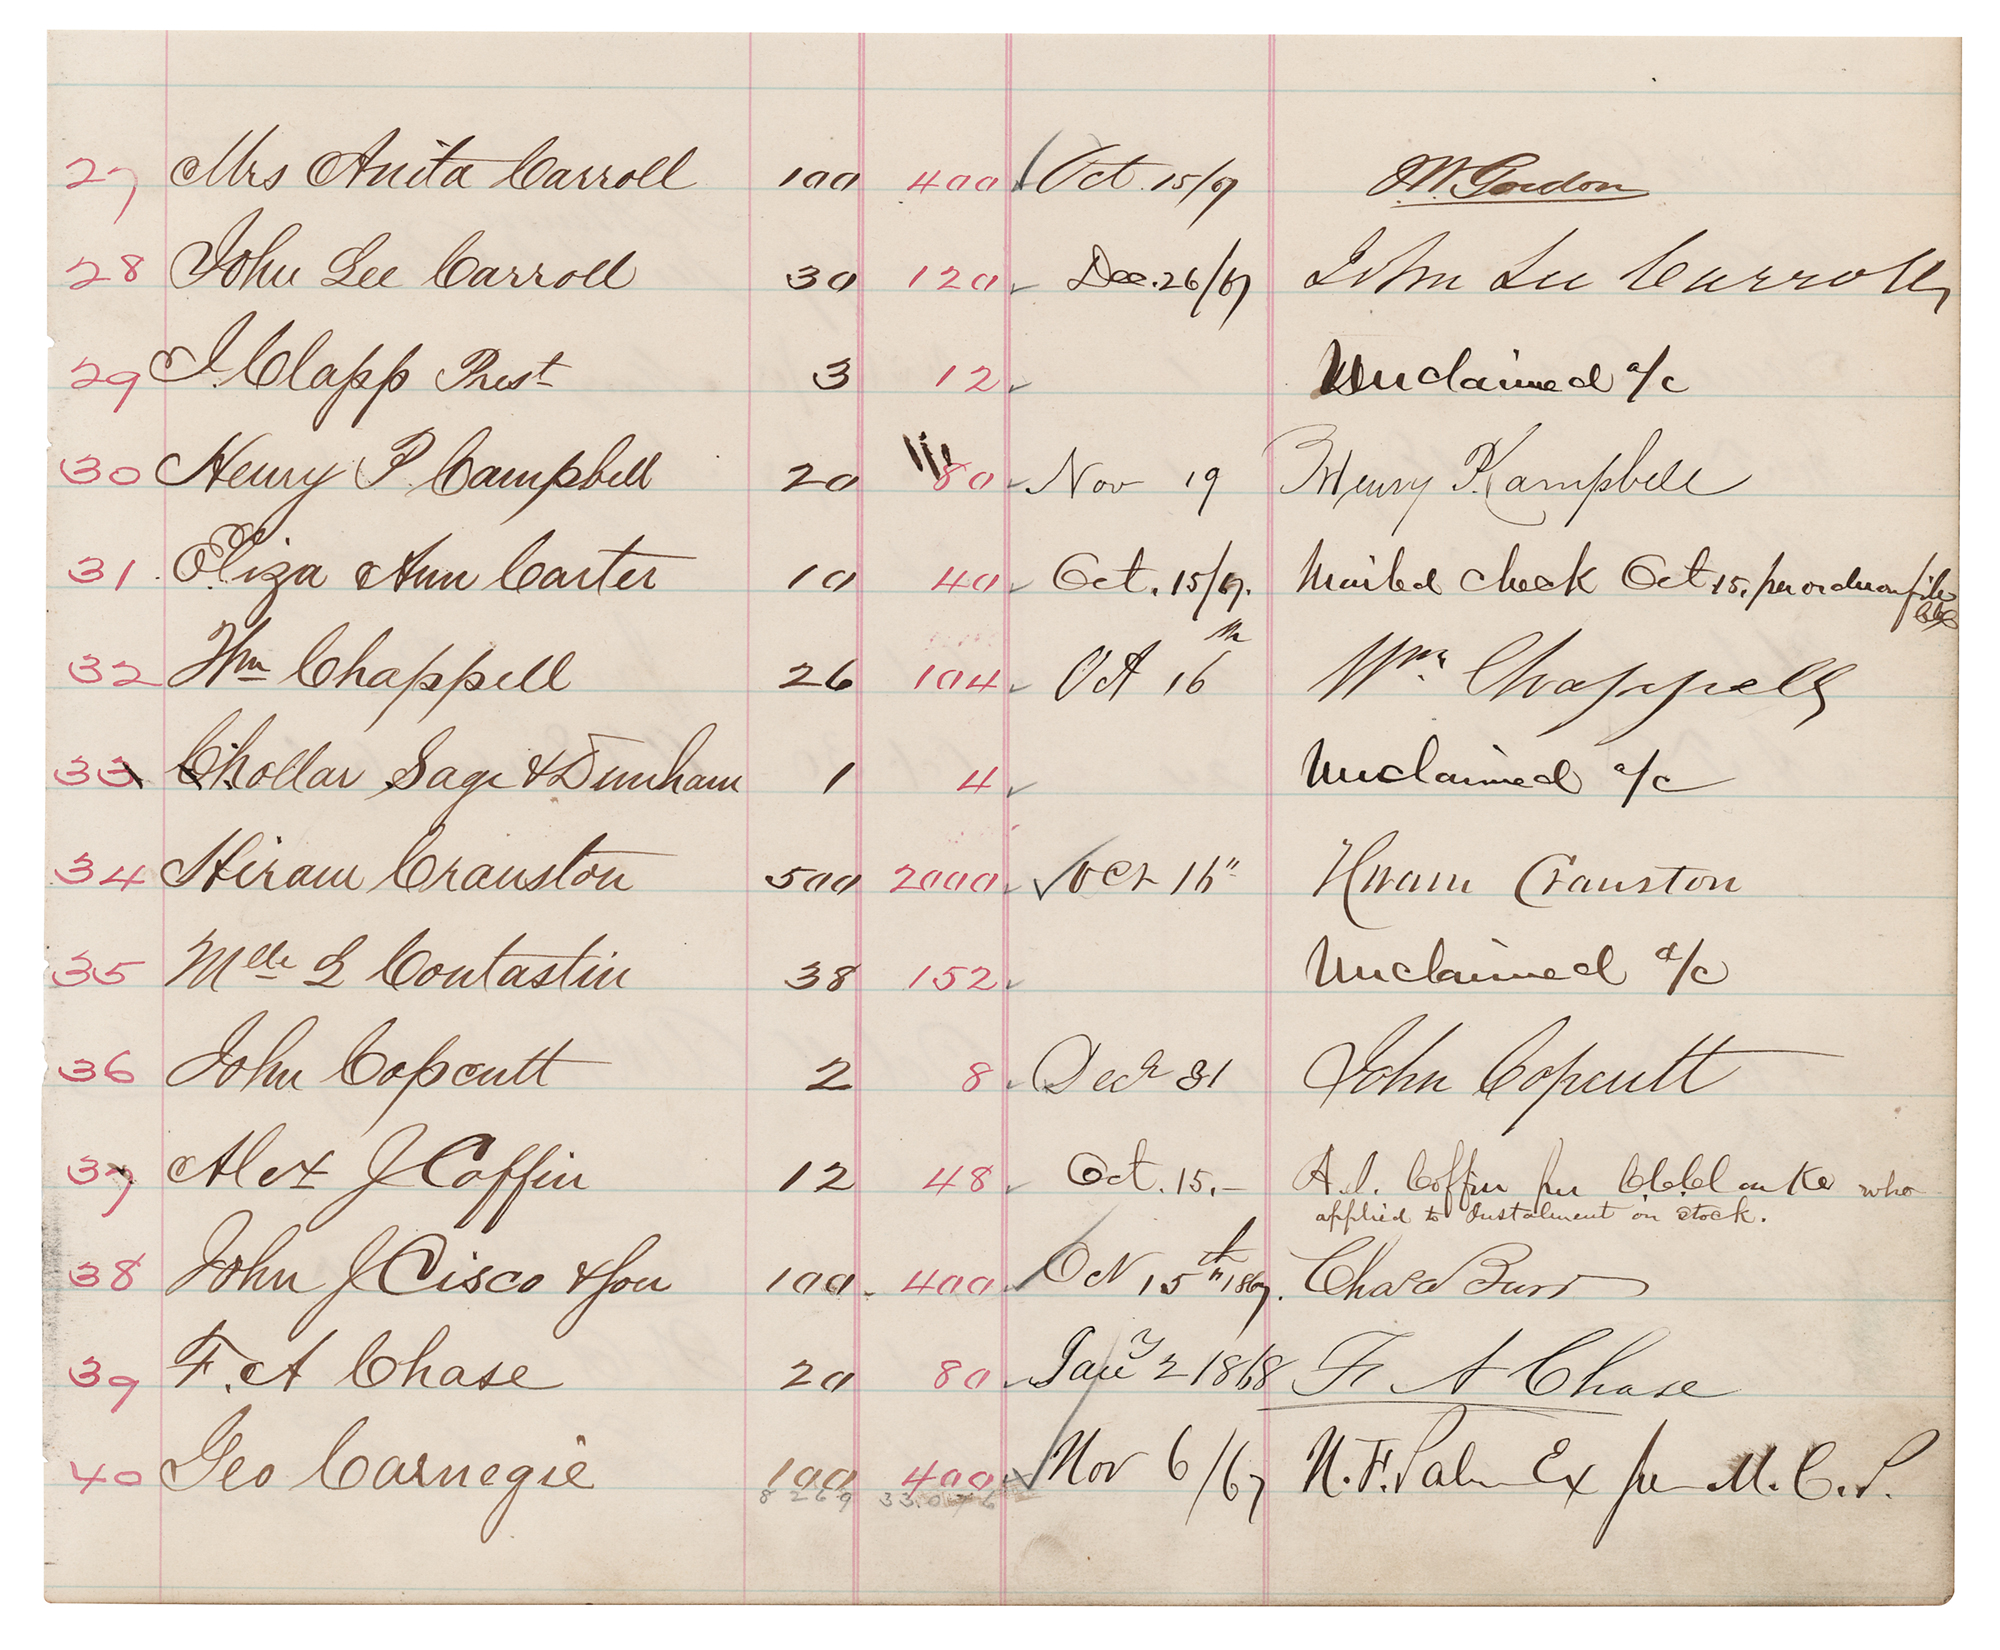 27 Mrs Anita Carroll 100 400 Oct. 15/67 Gordon
28 John Lee Carroll 30 120 Dec. 26/67 John Lee Carroll
29 J. Clapp Prest 3 12 Unclaimed a/c
30 Henry P Campbell 20 80 Nov 19 Henry P Kampbell
31 Eliza Ann Carter 10 40 Oct. 15/67. Mailed check Oct 15. per order on file
32 Wm Chappell 26 104 Oct 16th Wm Chappell
33 Chollar Sage & Dunham 1 4 Unclaimed a/c
34 Hiram Cranston 500 2000 Oct 16" Hiram Cranston
35 Mdle L Contastin 38 152 Unclaimed a/c
36 John Copcutt 2 8 Decr 31 John Copcutt
37 Alex J Coffin 12 48 Oct. 15.- A. J. Coffin per who
applied to Instalment on stock.
38 John J Cisco & Son 100. 400 Oct 15th 1867. Chas Burr
39 F. A Chase 20 80 Jany 2 1868 F A Chase
40 Geo Carnegie 100 400 Nov 6/67 N. F. Palmer Ex per M. C. P.
8269 33.076